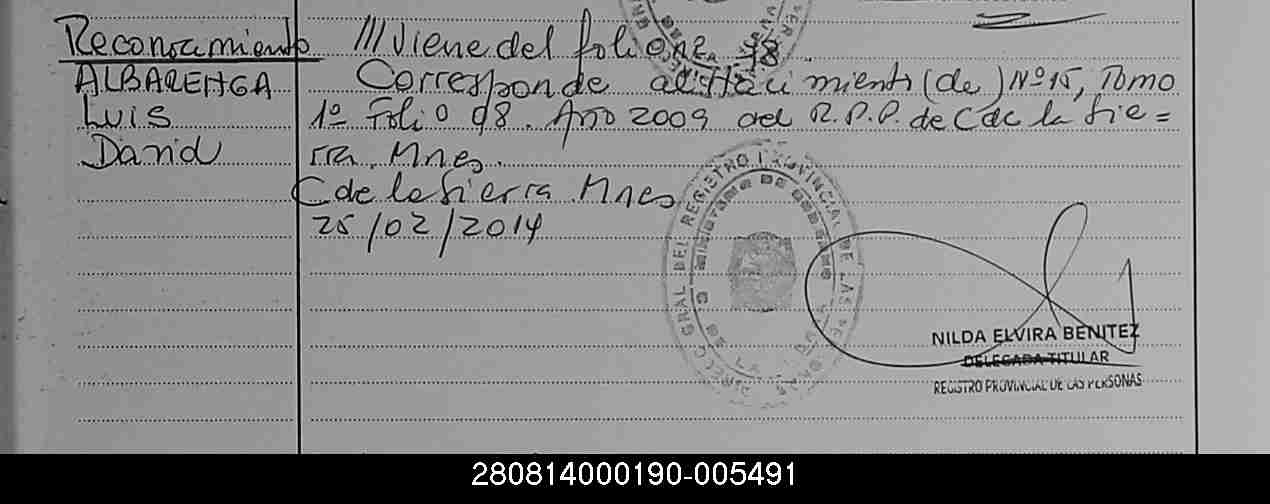 Reconocimiento /// Viene del folio Nº 98.
ALBARENGA Corresponde al Nacimiento (de) Nº 15, Tomo
Luis 1º Folio 98. Año 2009 del R.P.P. de C de la Sie=
David rra. Mnes.
C de la Sierra. Mnes
25/02/2014
DIREC. GRAL DEL REGISTRO PROVINCIAL DE LAS PERSONAS
MINISTERIO DE GOBIERNO
NILDA ELVIRA BENITEZ
DELEGADA TITULAR
REGISTRO PROVINCIAL DE LAS PERSONAS
280814000190-005491